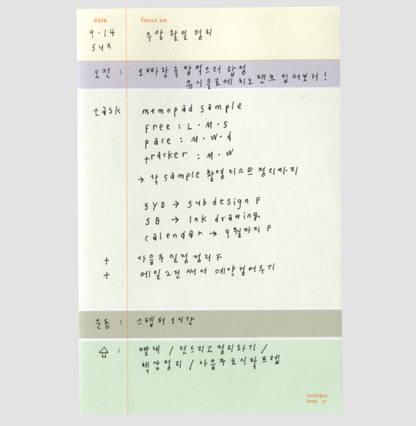 date focus on
9.14 주말 할일 정리
sun
오전 : 오빠랑 국밥 먹으러 합정
유니클로에 치노 팬츠 입어보러!
task memopad sample
Free : L · M · S
pace : M · W · d
tracker : M · W
→ 각 sample 촬영 리스트 정리까지
SYD → sub design F
SB → Ink drawing
calendar → 9월까지 F
+ 다음주 일정 정리 F
+ 메일 2건 써서 예약 걸어두기
운동 : 스텝퍼 1시간
: 빨래 / 건조기 정리하기 /
책상정리 / 다음주 도시락 프렙
analogue
keep